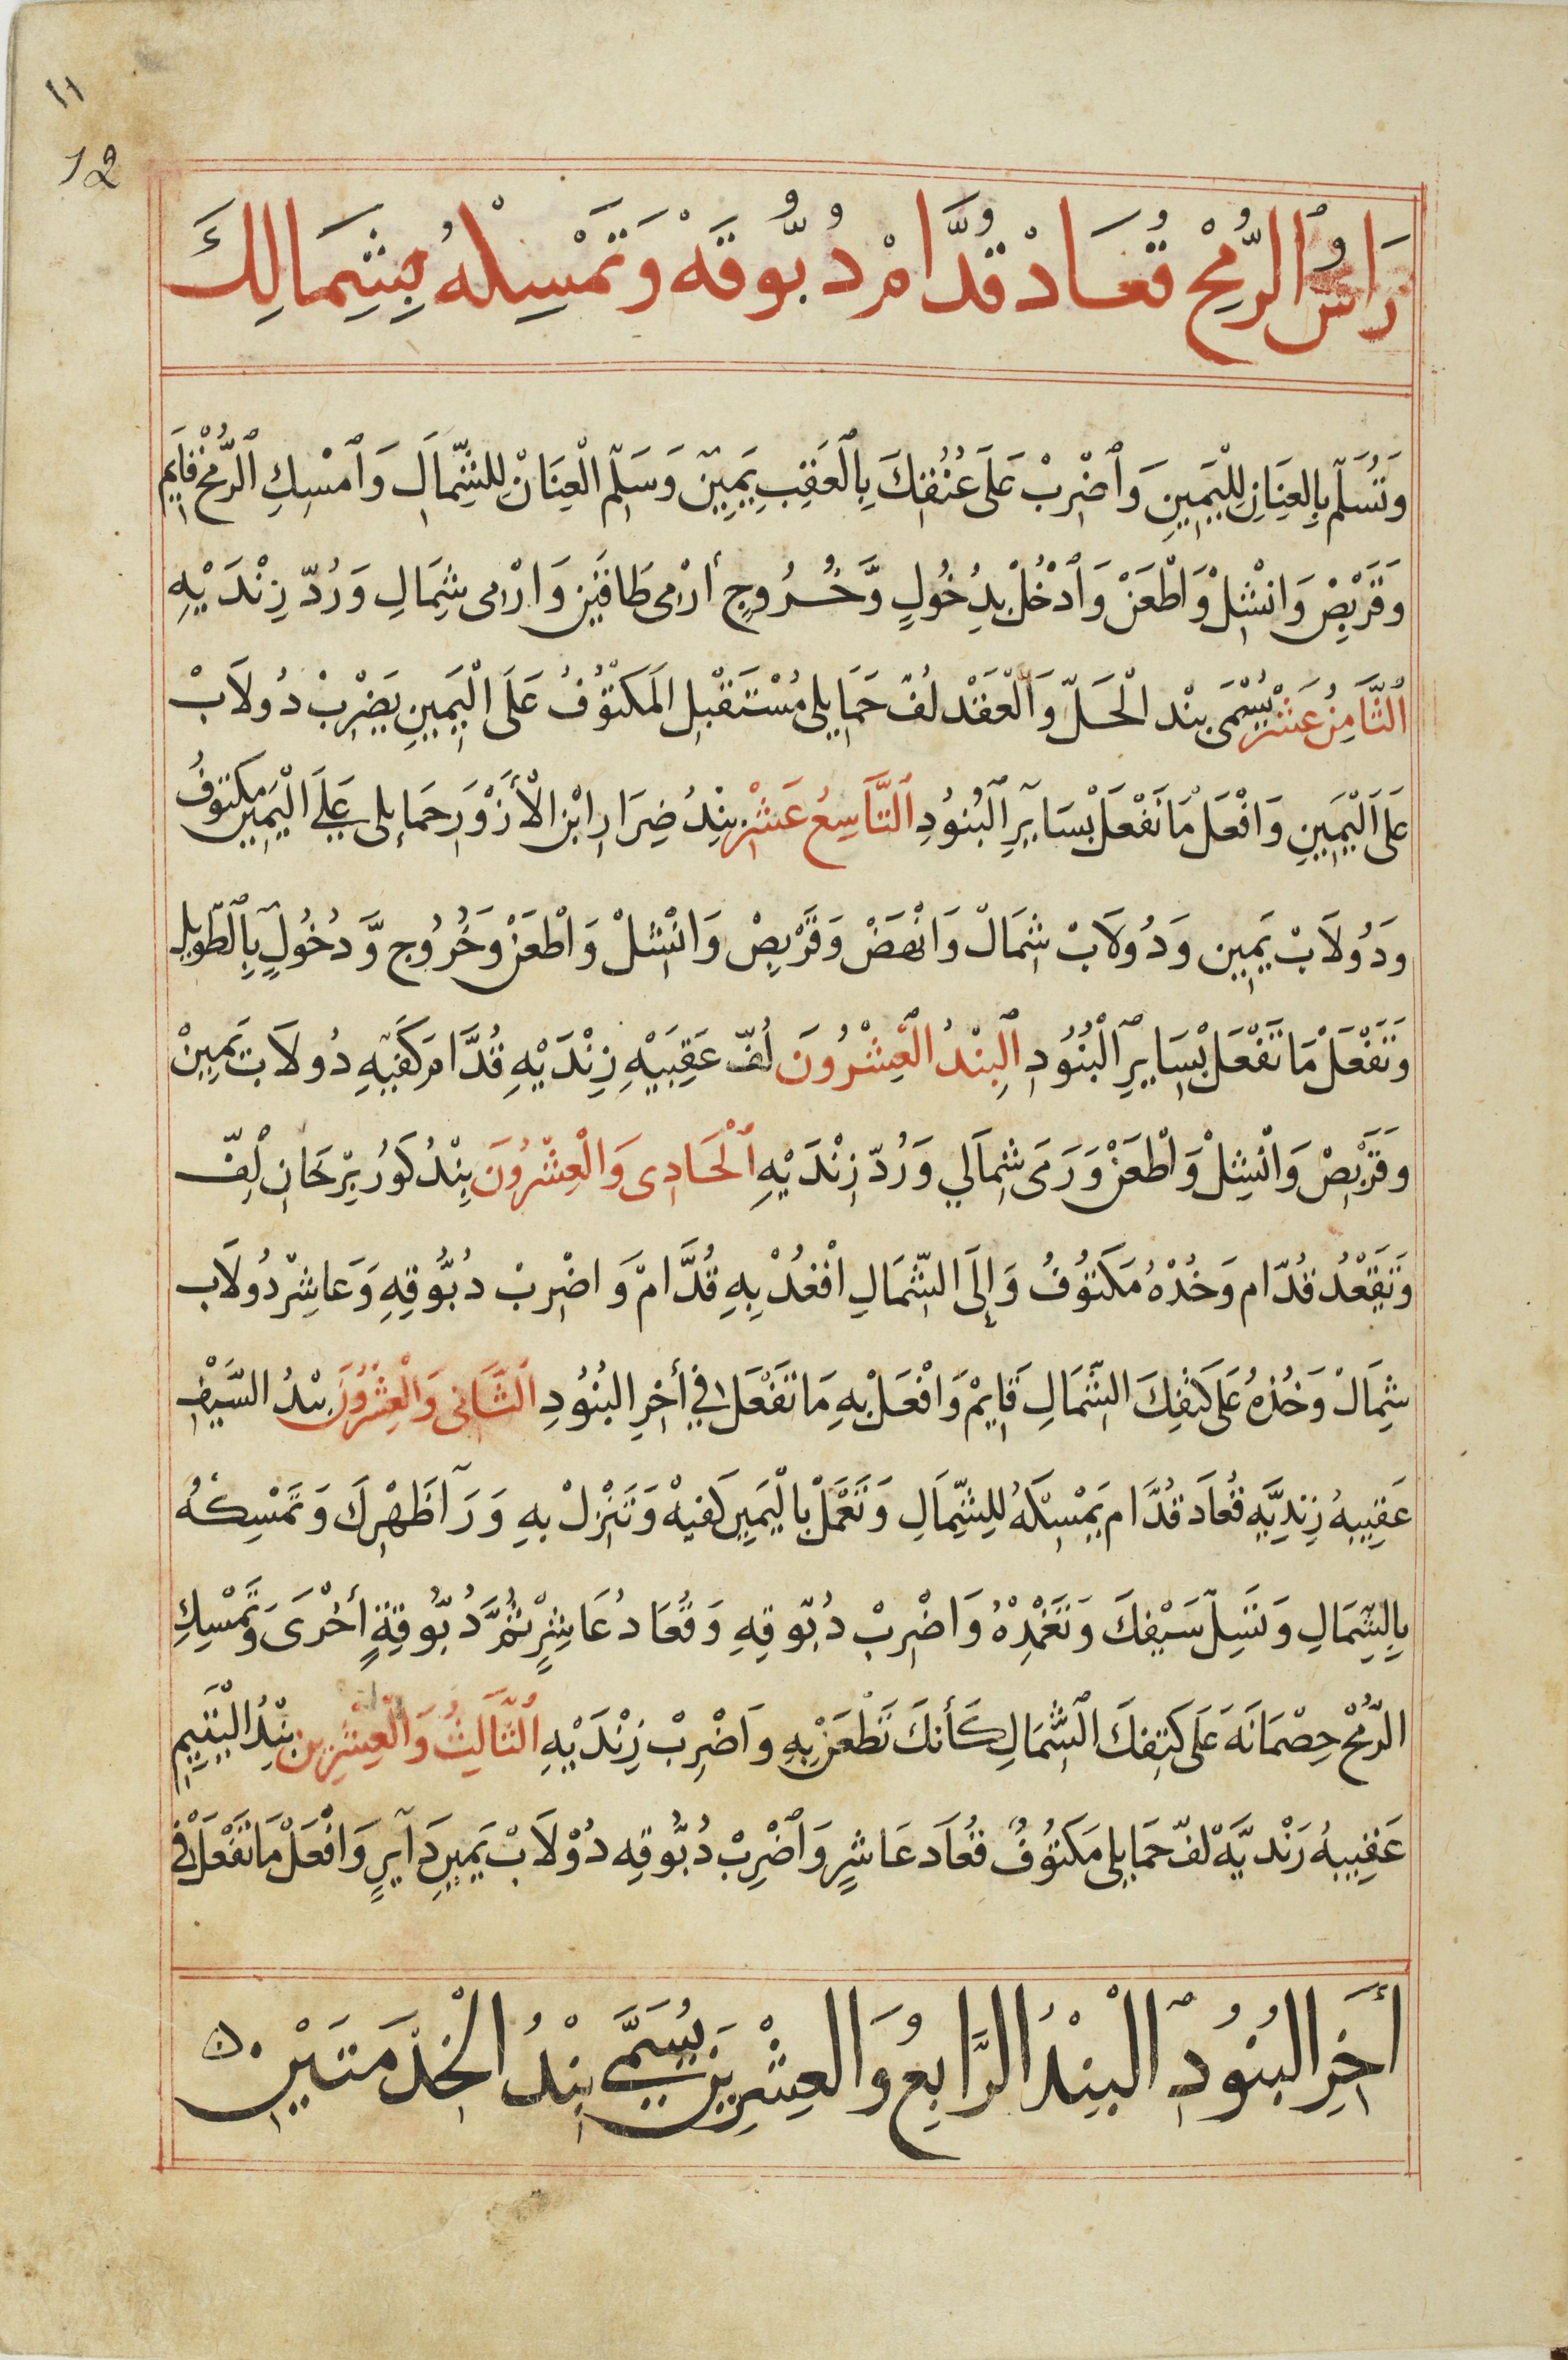 ١١
12
رَاسُ ٱلرُّمِحْ قُعَادْ قُدَّامْ دُبُّوقَهْ وَتَمْسِكْهُ بِشِمَالِكَ
وَتُسَلِّم بِالعِنَانِ لِلْيَمِينِ وَٱضْرِبْ عَلَى عُنُقِكَ بِٱلعَقِبِ يَمِينْ وَسَلِّم الْعِنَانْ لِلشِّمَالِ وَٱمْسِكِ ٱلرُّمْحْ قَايِم
وَقَرْبِصْ وَانْشِلْ وَاطْعَنْ وَٱدْخُلْ بِدُخُولٍ وَّخُرُوجٍ أرْمِى طَافَتَيْنِ وَارْمِى شِمَالِ وَرُدّ زِنْدَيْهِ
ٱلثَّامِنُ عَشَرْ يُسَمَّى بَنْد الْحَلّ وَالْعَقْدْ لُفّ حَمَايلِى مُسْتَقْبِل المَكْتُوُفُ عَلَى الْيَمِينِ يَضْرِبْ دُولَابْ
عَلَى اَلْيَمِينِ وَافْعَلْ مَا تَفْعَلْ بْسَايِرِ ٱلبُنُودِ ٱلتَّاسِعُ عَشَرْ بِنْدُ ضِرَارِ ابْنِ الْأَزْوَرِ حَمَايِلِى عَلَى الْيَمِين مَكتوفُ
وَدُولَابْ يَمِين وَدُولَابْ شِمَالْ وَانْهَضْ وَقَرْبِصْ وَانْشِلْ وَاطْعَنْ وَخُرُوج وَّدُخُولٍ بِٱلطَّوِيله
وَتَفْعَلْ مَا تَفْعَلْ بْسَايِرِ ٱلْبُنُودِ اَلبِنْدُ الْعِشْرُونَ لُفّ عَقِبَيْهِ زِنْدَيْهِ قُدَّامَ كَفَيْهِ دُولَابْ يَمِينْ
وَقَرْبِصْ وَانْشِلْ وَاطْعَنْ وَرَمَى شِمَالي وَرُدّ زِنْدَيْهِ ٱلْحَادِى وَالْعِشْرُونَ بِنْدُ كَورُ بِرْحَانِ لِفّ
وَتَقْعُدُ قُدّام وَخُدْهُ مَكْتوُفُ وَإِلَى الشِّمَالِ اقْعُدْ بِهِ قُدَّامْ وَاضْرِبْ دُبُّوقِهِ وَعَاشِرْ دُولَاب
شِمَالْ وَخُذْهُ عَلَى كَتْفِكَ الشِّمَالِ قَايِمْ وَافْعَلْ بِهِ مَا تَفْعَل فِي أخِرِ البُنُودِ الثَّانِى وَالْعِشْرُونَ بِنْدُ السَّيْفِ
عَقِيبِهُ زِنْدِيَّهِ قُعَادَ قُدَّام يَمْسِكْهُ لِلشِّمَالِ وَتَعْمَلْ بالْيَمِينِ كَفيهْ وَتَنْزِلْ بهِ وَرَآ ظَهْرِكَ وَتَمْسِكهُ
بِالشِّمَالِ وَتَسِلّ سَيْفِكَ وَتَغْمِدْهُ وَاضْرِبْ دُبّوقِهِ وَقُعَادُ عَاشِرٍ ثُمَّ دُبُّوقِةٍ أخْرَى وَتَمْسِكِ
الرُّمْحْ حِصْمَانَهَ عَلَى كَتِفكَ الشِّمَالِ كَأنكَ تَطْعَنْ بِهِ وَاضْرِبْ زِنْدَيْهِ الثَّالِثُ وَالْعِشْرِينِ بِنْدُ الْيَتِيمِ
عَقِيبِهُ زَنْديَّهْ لفّ حَمَايِلِى مَكتوُفُ قُعَادَ عَاشِرٍ وَٱضْرِبْ دُبُّوقِه دُوْلَابْ يَمِينِ دَآيِرٍ وَافْعَلْ مَا تَفْعَلْ فِى
أخِرِ البُنُودِ ٱلْبِنْدُ الرَّابِعُ وَالعِشْرِينَ يُسَمَّى بِنْدُ الْخِدْمَتَيْنِ